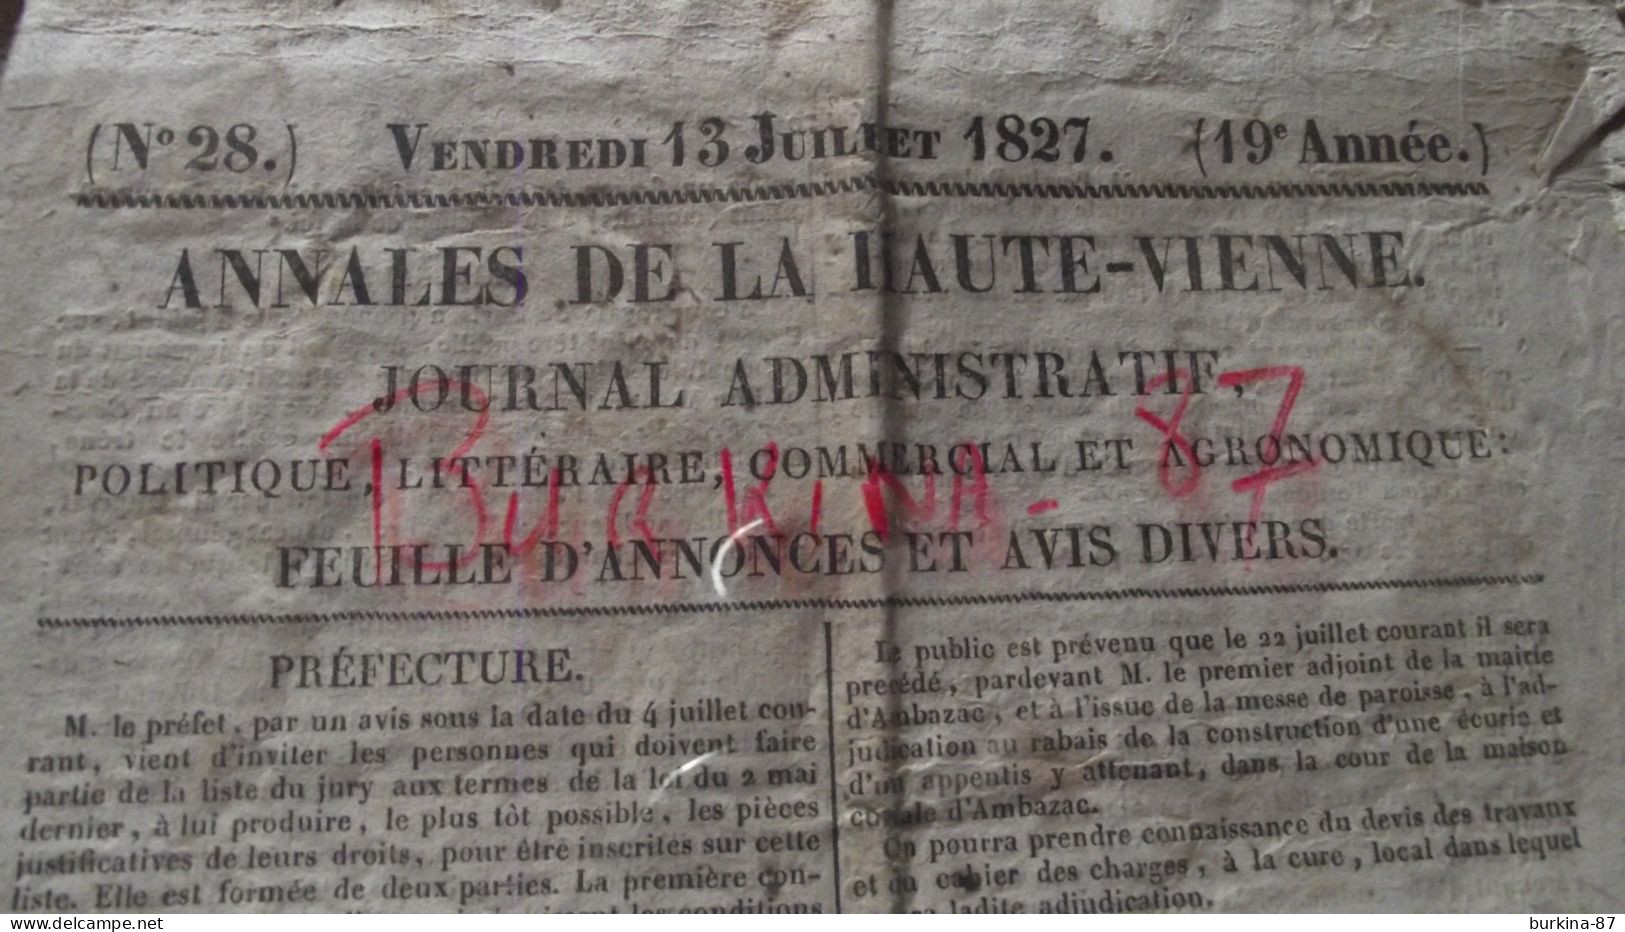 (Nº 28.) VENDREDI 13 JUILLET 1827. (19e Année.)
ANNALES DE LA HAUTE-VIENNE.
JOURNAL ADMINISTRATIF,
POLITIQUE, LITTÉRAIRE, COMMERCIAL ET AGRONOMIQUE:
BURKINA-87
FEUILLE D'ANNONCES ET AVIS DIVERS.
PRÉFECTURE.
M. le préfet, par un avis sous la date du 4 juillet cou-
rant, vient d'inviter les personnes qui doivent faire
partie de la liste du jury aux termes de la loi du 2 mai
dernier, à lui produire, le plus tôt possible, les pièces
justificatives de leurs droits, pour être inscrites sur cette
liste. Elle est formée de deux parties. La première con-
les conditions
Le public est prévenu que le 22 juillet courant il sera
precédé, pardevant M. le premier adjoint de la mairie
d'Ambazac, et à l'issue de la messe de paroisse, à l'ad-
judication au rabais de la construction d'une écurie et
d'un appentis y attenant, dans la cour de la maison
curiale d'Ambazac.
On pourra prendre connaissance du devis des travaux
et du cahier des charges, à la cure, local dans lequel
ladite adjudication.
burkina-87